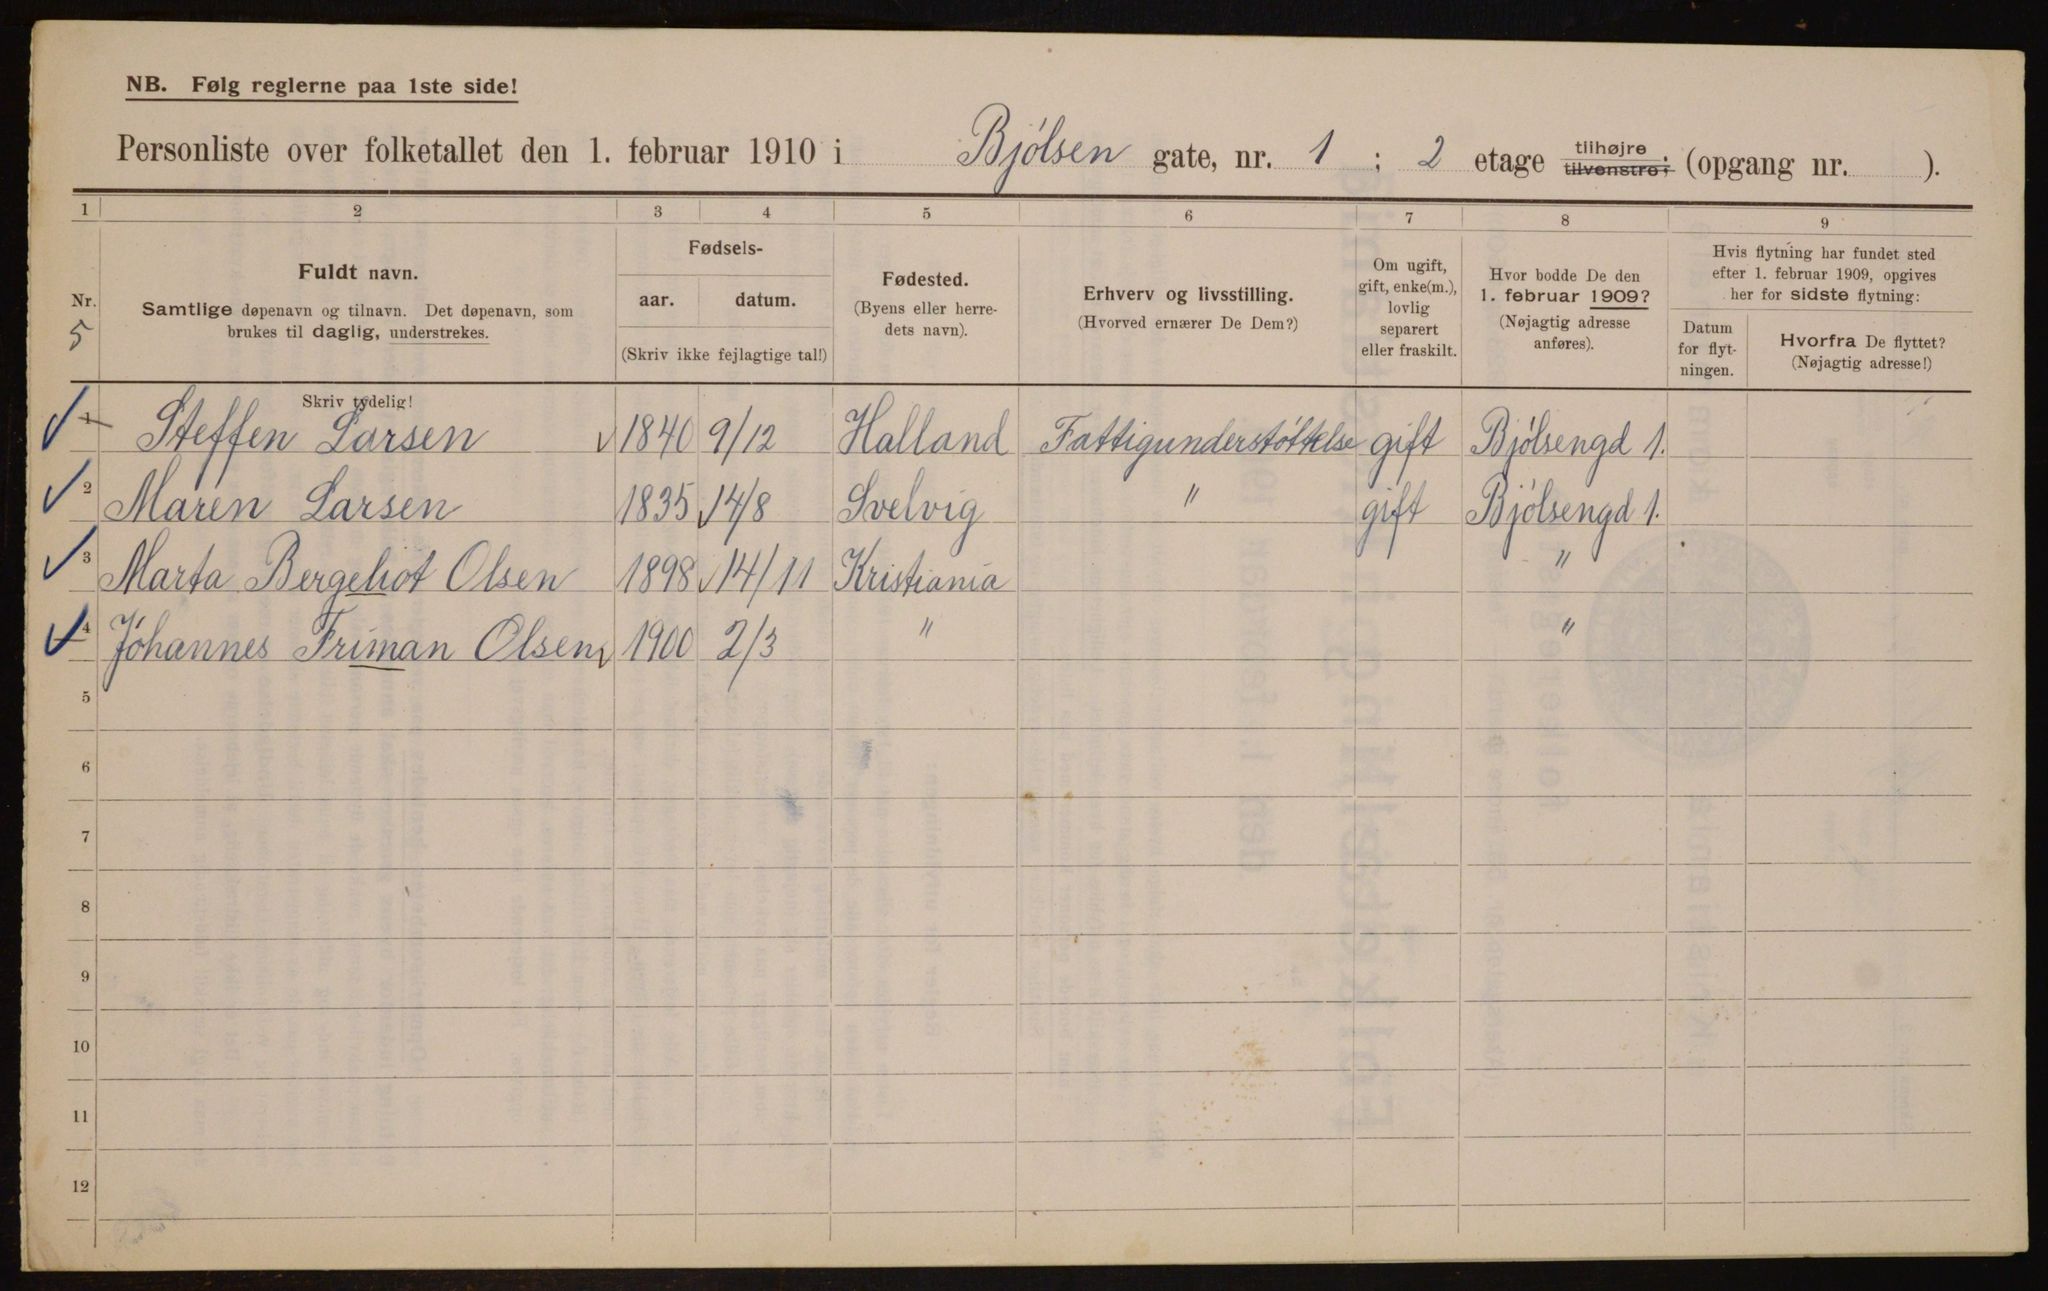 NB. Følg reglerne paa 1ste side!
Personliste over folketallet den 1. februar 1910 i Bjølsen gate, nr. 1 ; 2 etage tilhøjre tilvenstre; (opgang nr. ).
1 2 3 4 5 6 7 8 9
Nr. 5
Fuldt navn.
Samtlige døpenavn og tilnavn. Det døpenavn, som
brukes til daglig, understrekes.
Fødsels-
aar. datum.
(Skriv ikke fejlagtige tal!)
Fødested.
(Byens eller herre-
dets navn).
Erhverv og livsstilling.
(Hvorved ernærer De Dem?)
Om ugift,
gift, enke(m.),
lovlig
separert
eller fraskilt.
Hvor bodde De den
1. februar 1909?
(Nøjagtig adresse
anføres).
Hvis flytning har fundet sted
efter 1. februar 1909, opgives
her for sidste flytning:
Datum
for flyt-
ningen.
Hvorfra De flyttet?
(Nøjagtig adresse!)
Skriv tydelig!
1 Steffen Larsen 1840 9/12 Halland Fattigunderstøttelse gift Bjølsengd 1.
2 Maren Larsen 1835 14/8 Svelvig " gift Bjølsengd 1.
3 Marta Bergeliot Olsen 1898 14/11 Kristiania "
4 Johannes Friman Olsen 1900 2/3 " "
5
6
7
8
9
10
11
12